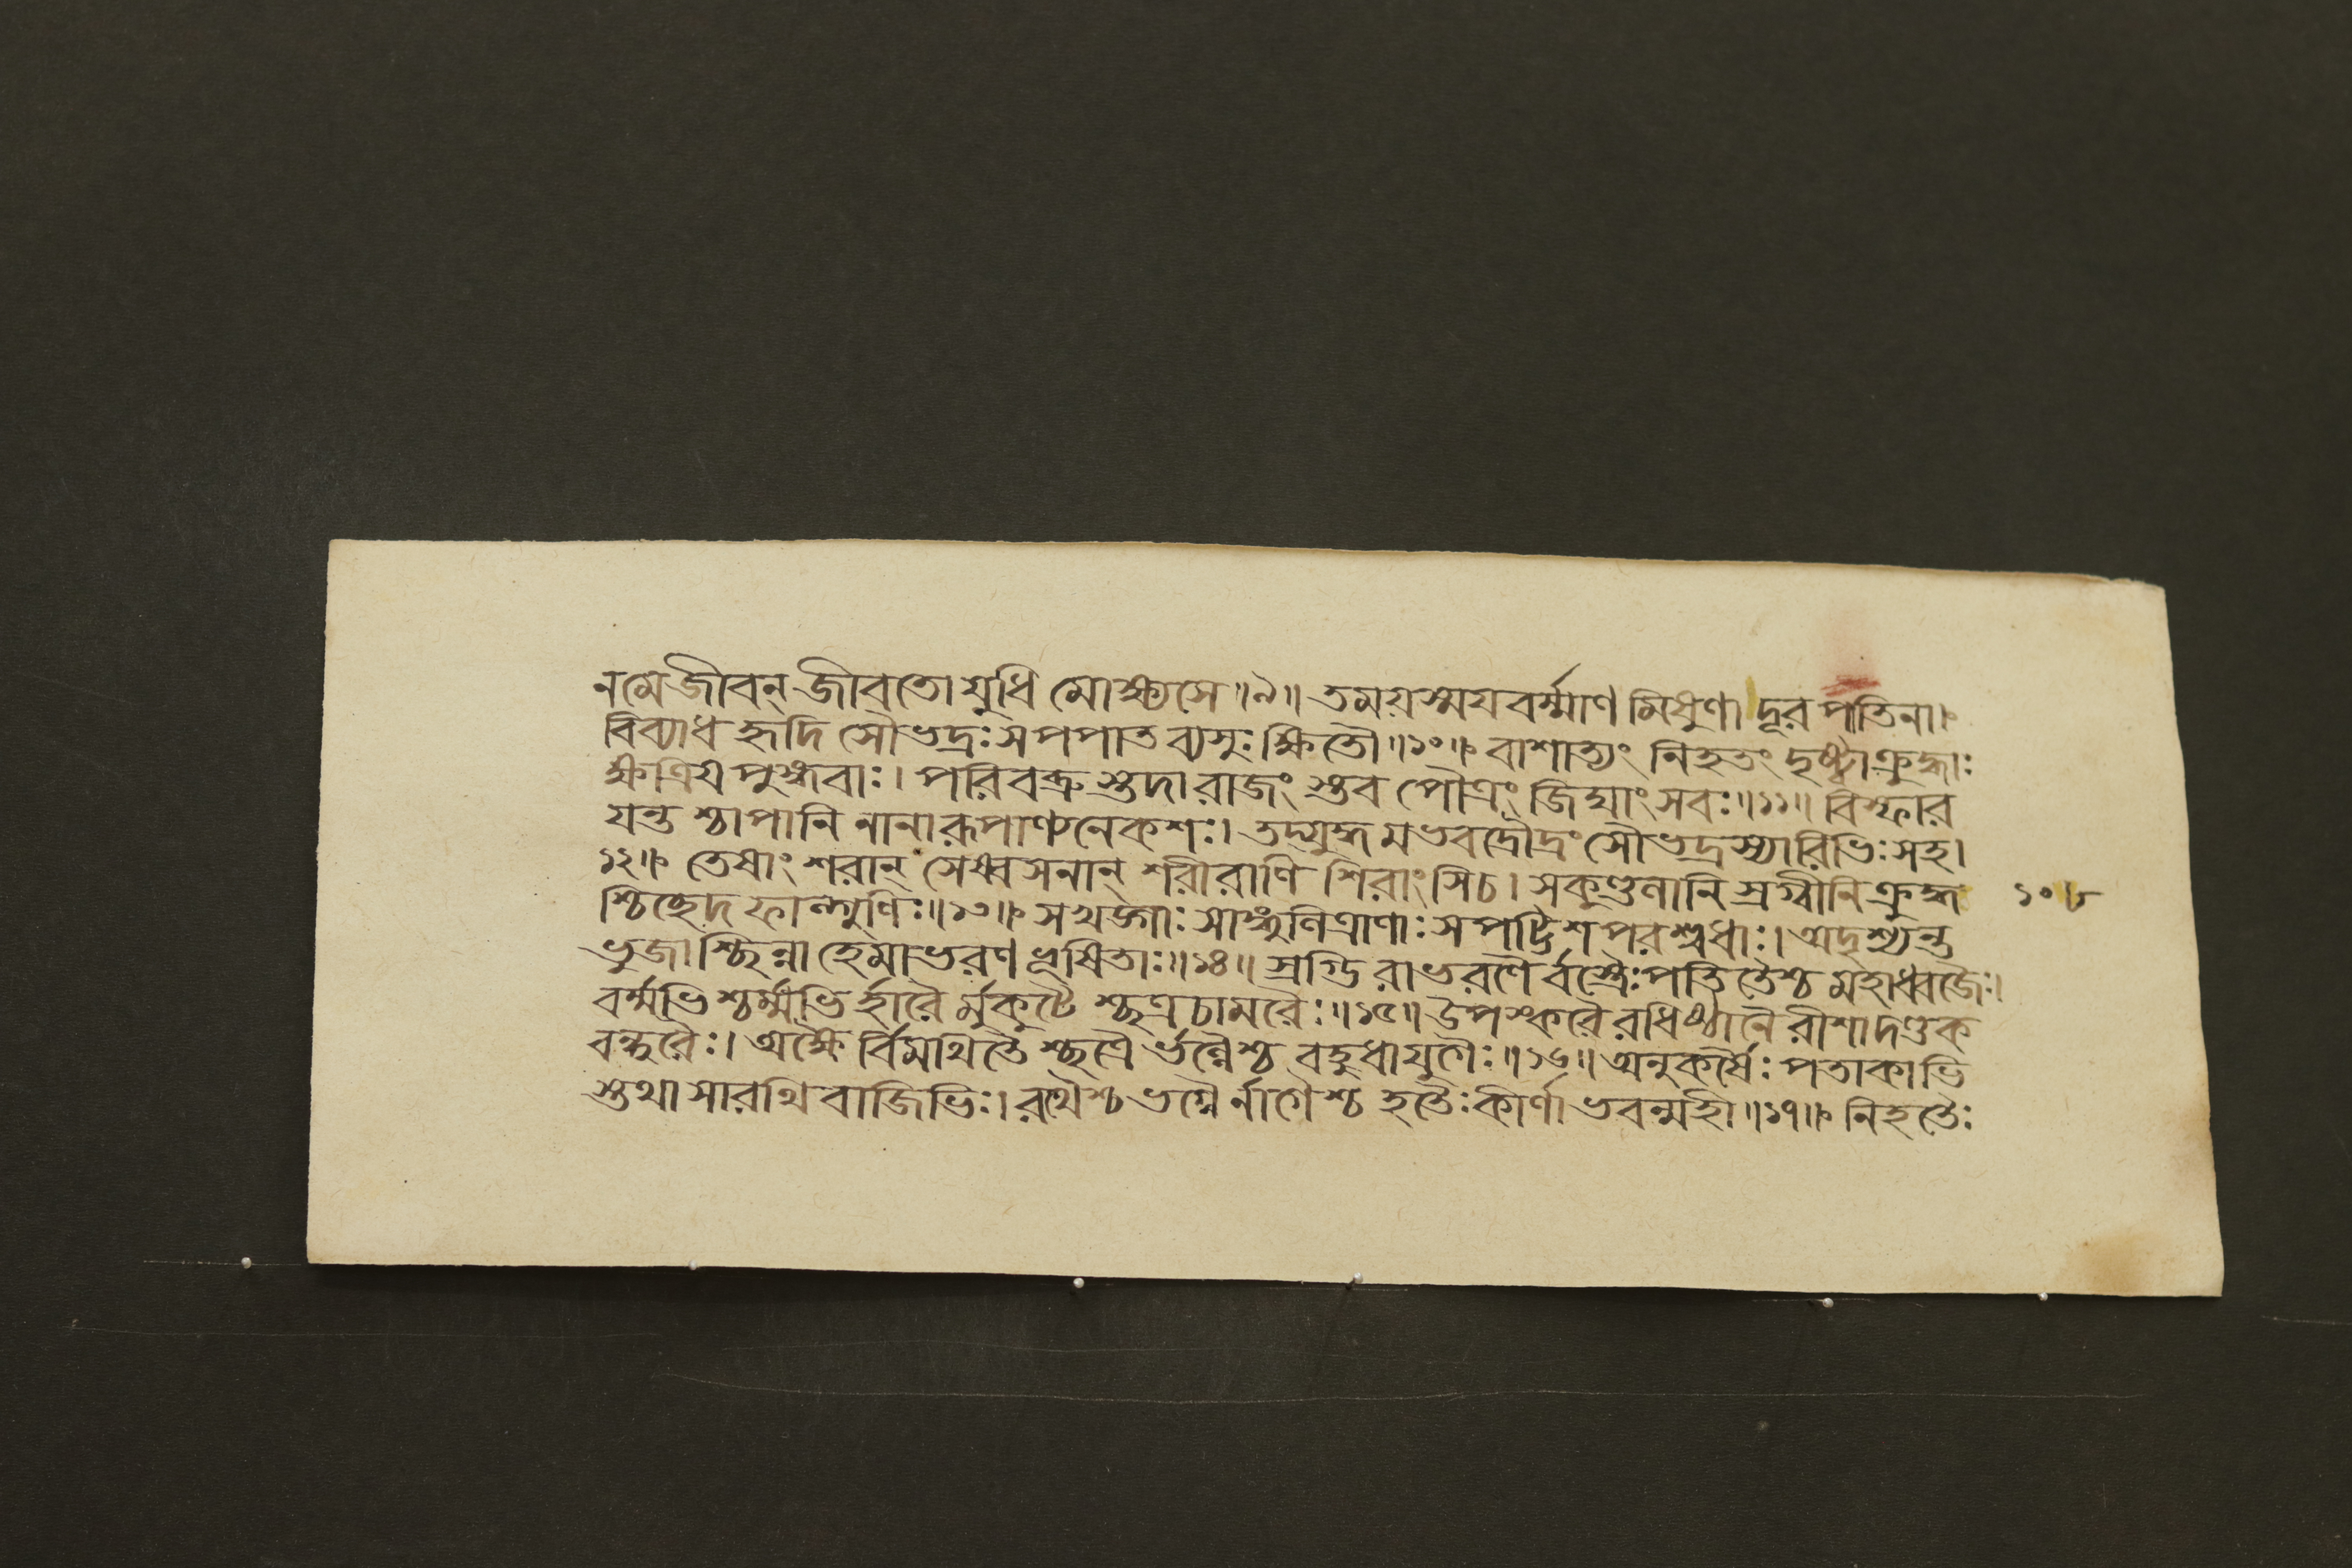 ন মে জীবন্ জীবতো যুধি মোক্ষ্যসে॥৯॥ তময়স্ময়বর্ম্মাণ মিষুণা দূর পাতিনা।
বিব্যাধ হৃদি সৌভদ্রঃ স পপাত ব্যসুঃ ক্ষিতৌ॥১০॥ বাশাত্যং নিহতং দৃষ্ট্বা ক্রুদ্ধাঃ
ক্ষত্রিয় পুঙ্গবাঃ। পরিবব্রু স্তদা রাজং স্তব পৌত্রং জিঘাংসবঃ॥১১॥ বিস্ফার
যন্ত শ্চাপানি নানারূপাণ্যনেকশঃ। তদ্যুদ্ধ মভবদ্রৌদ্রং সৌভদ্রস্যারিভিঃ সহ।
১২॥ তেষাং শরান্ সেষ্বসনান্ শরীরাণি শিরাংসি চ। সকুণ্ডলানি স্রগ্বীনি ক্রুদ্ধ
শ্চিচ্ছেদ ফাল্গুণিঃ॥১৩॥ সখড্গাঃ সাঙ্গুলিত্রাণাঃ সপট্টিশ পরশ্বধাঃ। অদৃশ্যন্ত
ভুজা শ্ছিন্না হেমাভরণ ভূষিতাঃ॥১৪॥ স্রগ্ভি রাভরণৈ র্বস্ত্রৈঃ পতিতৈশ্চ মহাধ্বজৈঃ।
বর্ম্মভি শ্চর্ম্মভি র্হারৈ র্মুকুটৈ শ্ছত্র চামরৈঃ॥১৫॥ উপস্করৈ রধিষ্ঠানৈ রীশাদণ্ডক
বন্ধুরৈঃ। অক্ষৈ র্বিমথিতৈ শ্চক্রৈ র্ভগ্নৈশ্চ বহুধা যুগৈঃ॥১৬॥ অনুকর্ষৈঃ পতাকাভি
স্তথা সারথি বাজিভিঃ। রথৈশ্চ ভগ্নৈ র্নাগৈশ্চ হতৈঃ কীর্ণা ভবন্মহী॥১৭॥ নিহতৈঃ
১০৮